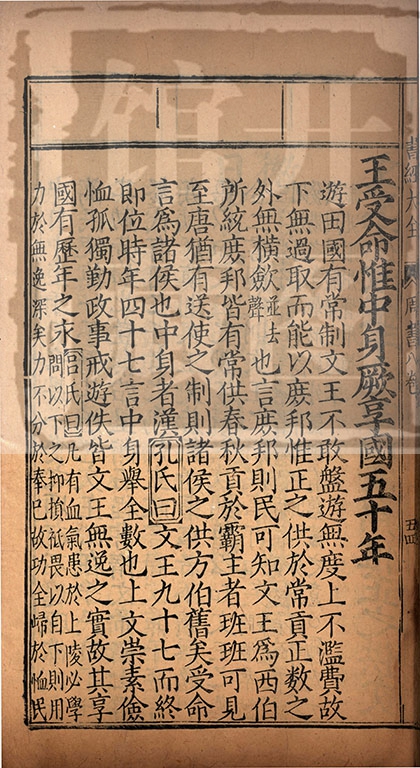 王受命惟中身厥享國五十年
遊田國有常制文王不敢盤遊無度上不濫費故
下無過取而能以庶邦惟正之供於常貢正數之
外無横歛去聲並也言庶邦則民可知文王爲西伯
所統庶邦皆有常供春秋貢於霸主者班班可見
至唐猶有送使之制則諸侯之供方伯舊矣受命
言爲諸侯也中身者漢孔氏曰文王九十七而終
即位時年四十七言中身舉全數也上文崇素儉
恤孤獨勤政事戒遊佚皆文王無逸之實故其享
國有歷年之永呂氏曰凡有血氣患於上陵必學問以下之抑損祗畏以自下則用
力於無逸深矣力不分於奉已故功全歸於恤民
五四